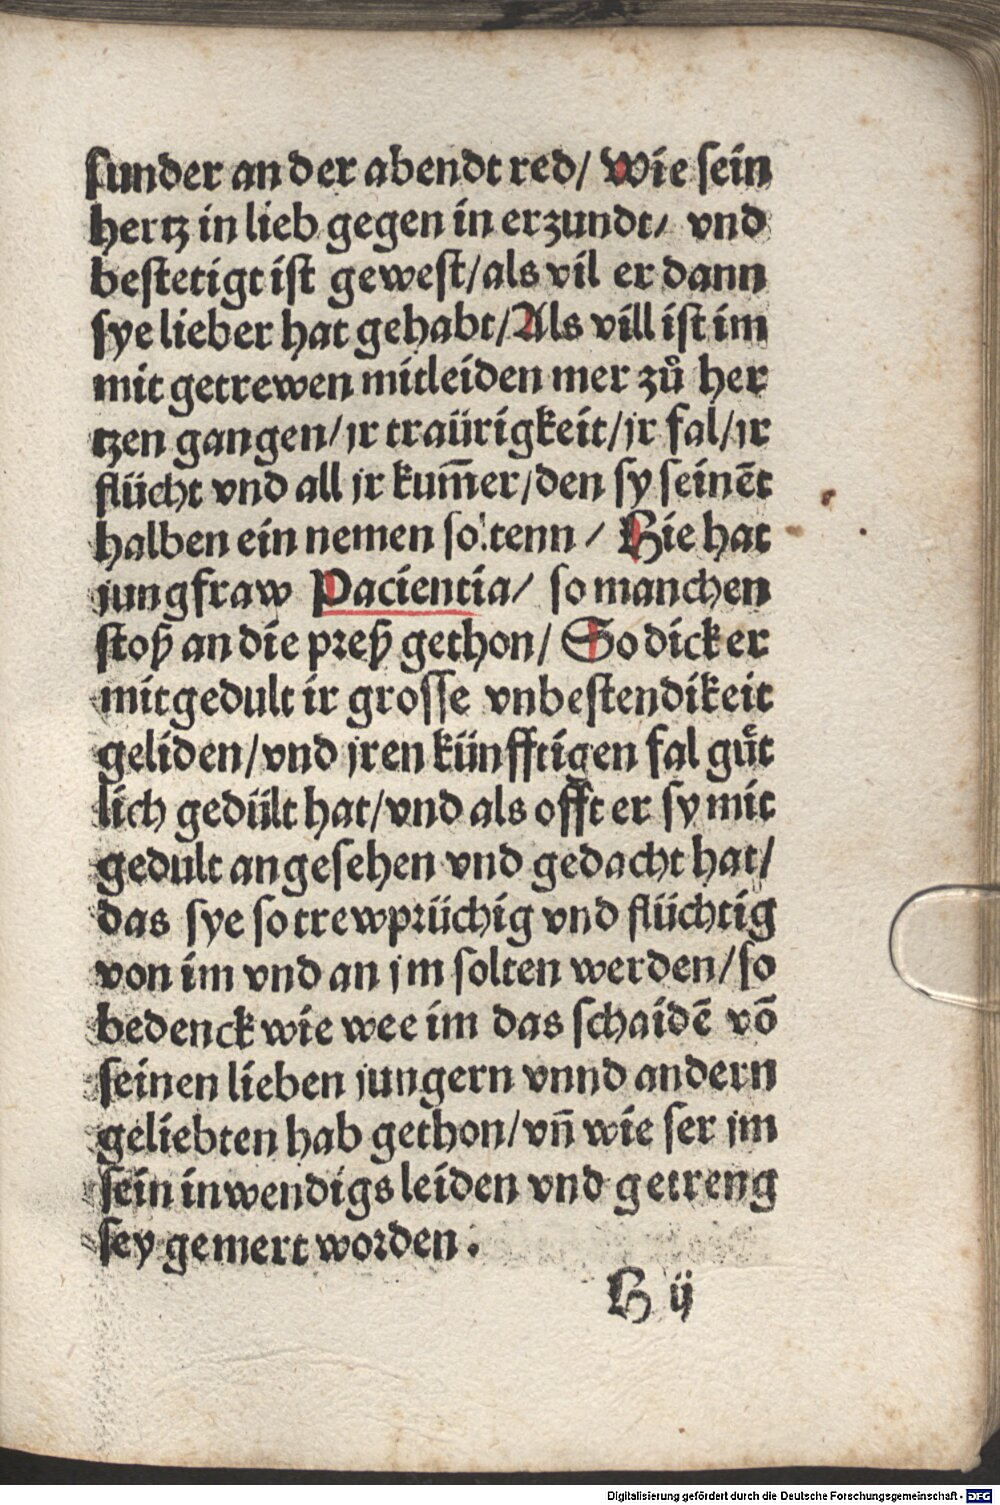 ſunder an der abendt red/ Wie ſein
hertz in lieb gegen in erzundt/ vnd
beſtetigt iſt geweſt/als vil er dann
ſye lieber hat gehabt/Als vill iſt im
mit getrewen mitleiden mer zů her
tzen gangen/jr traürigkeit/jr fal/jr
flücht vnd all jr kum̅er/den ſy ſeinēt
halben ein nemen ſoltenn / Hie hat
jungfraw Pacientia/ ſo manchen
ſtoß an die preß gethon/ So dick er
mit gedult ir groſſe vnbeſtendikeit
geliden/vnd jren künfftigen fal guͤt
lich gedült hat/vnd als offt er ſy mit
gedult angeſehen vnd gedacht hat/
das ſye ſo trewprüchig vnd flüchtig
von im vnd an jm ſolten werden/ſo
bedenck wie wee im das ſchaidē vō
ſeinen lieben jungern vnnd andern
geliebten hab gethon/vn̄ wie ſer jm
ſein inwendigs leiden vnd getreng
ſey gemert worden.
H ij
Digitalisierung gefördert durch die Deutsche Forschungsgemeinschaft - DFG